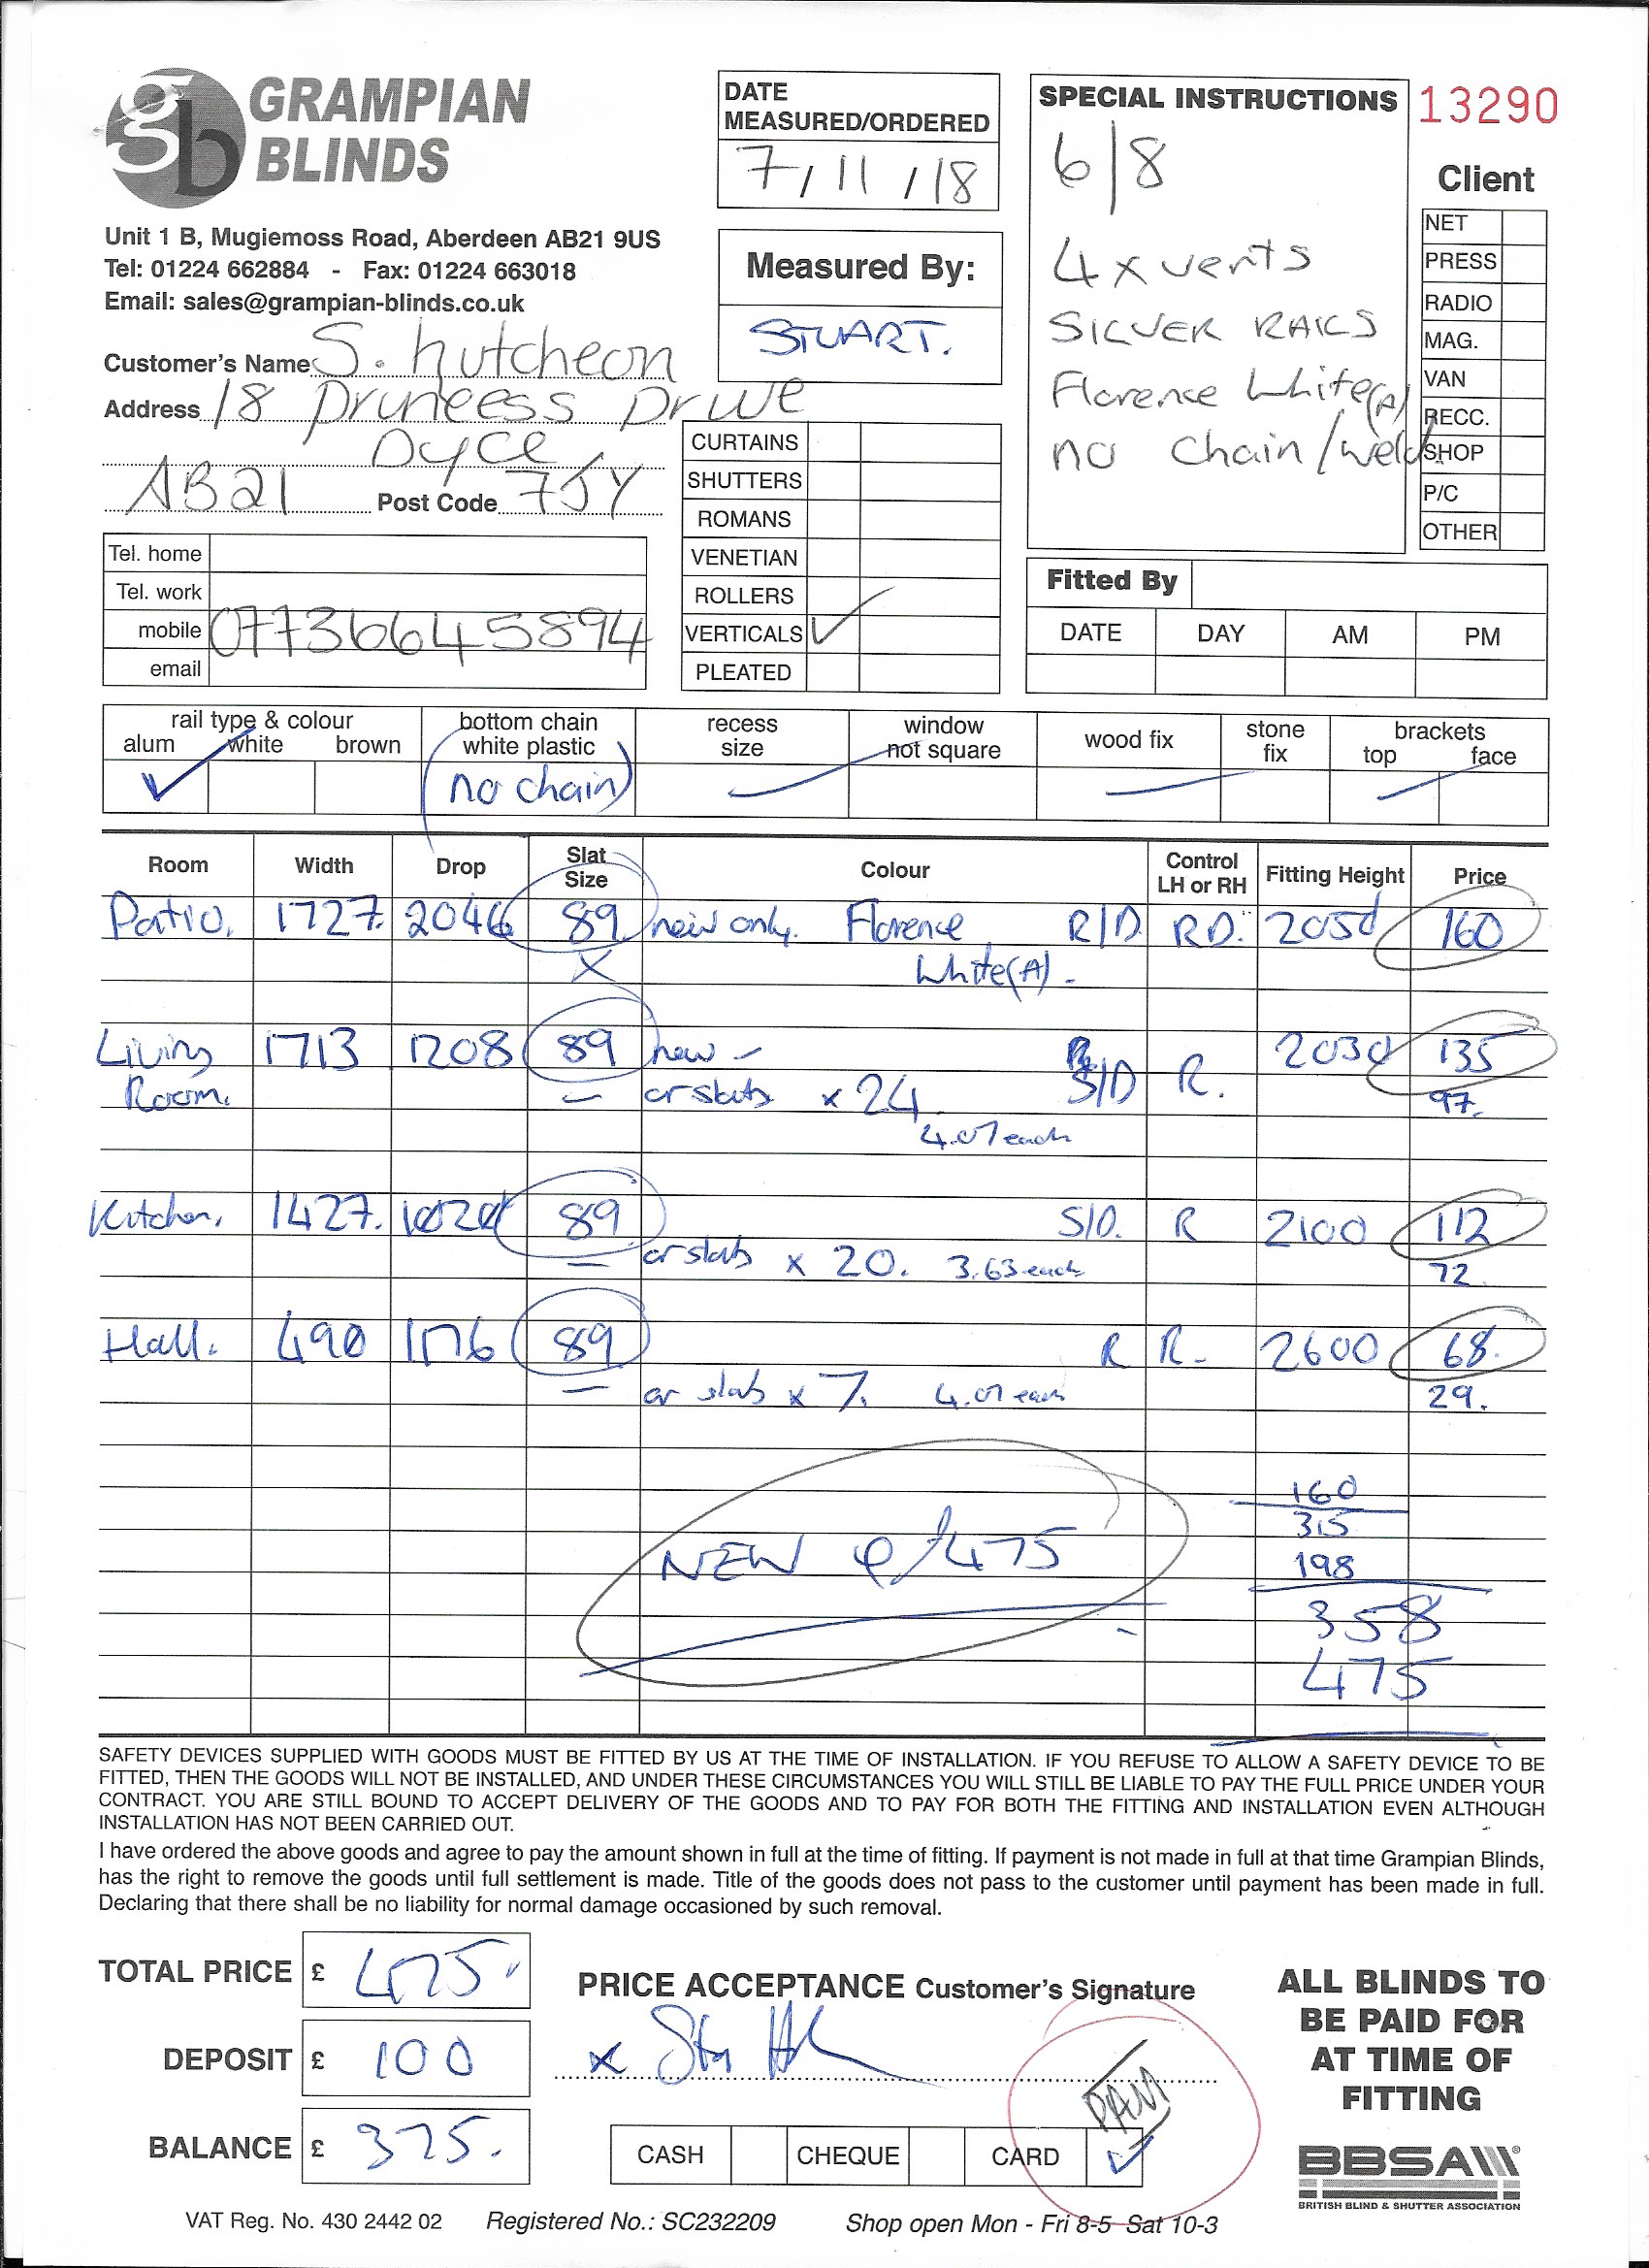 gb GRAMPIAN BLINDS
Unit 1 B, Mugiemoss Road, Aberdeen AB21 9US
Tel: 01224 662884 - Fax: 01224 663018
Email: sales@grampian-blinds.co.uk
DATE MEASURED/ORDERED
7/11/18
Measured By:
STUART.
SPECIAL INSTRUCTIONS
6/8
4 x vents
SILVER RAILS
Florence White(A)
no chain/weld
13290
Client
NET
PRESS
RADIO
MAG.
VAN
RECC.
SHOP
P/C
OTHER
Customer's Name S. Hutcheon
Address 18 Drive
Dyce
AB21 Post Code 7JY
Tel. home
Tel. work
mobile 07736645894
email
CURTAINS
SHUTTERS
ROMANS
VENETIAN
ROLLERS
VERTICALS ✓
PLEATED
Fitted By
DATE DAY AM PM
rail type & colour bottom chain recess window wood fix stone brackets
alum white brown white plastic size not square fix top face
✓ (no chain)
Room Width Drop Slat Size Colour Control LH or RH Fitting Height Price
Patio. 1727. 2046 89 new only. Florence R/D RD. 2050 160
X White(A).
Living 1713 1208 89 new S/D R. 2030 135
Room. or slats x 24 97.
4.07 each
Kitchen. 1427. 1020 89 S/D. R 2100 112
or slats x 20. 3.63 each 72
Hall. 490 1176 89 R R. 2600 68.
or slats x 7. 4.07 each 29.
160
315
198
NEW @ £475
358
475
SAFETY DEVICES SUPPLIED WITH GOODS MUST BE FITTED BY US AT THE TIME OF INSTALLATION. IF YOU REFUSE TO ALLOW A SAFETY DEVICE TO BE
FITTED, THEN THE GOODS WILL NOT BE INSTALLED, AND UNDER THESE CIRCUMSTANCES YOU WILL STILL BE LIABLE TO PAY THE FULL PRICE UNDER YOUR
CONTRACT. YOU ARE STILL BOUND TO ACCEPT DELIVERY OF THE GOODS AND TO PAY FOR BOTH THE FITTING AND INSTALLATION EVEN ALTHOUGH
INSTALLATION HAS NOT BEEN CARRIED OUT.
I have ordered the above goods and agree to pay the amount shown in full at the time of fitting. If payment is not made in full at that time Grampian Blinds,
has the right to remove the goods until full settlement is made. Title of the goods does not pass to the customer until payment has been made in full.
Declaring that there shall be no liability for normal damage occasioned by such removal.
TOTAL PRICE £ 475.
DEPOSIT £ 100
BALANCE £ 375.
PRICE ACCEPTANCE Customer's Signature
x
CASH CHEQUE CARD ✓
ALL BLINDS TO
BE PAID FOR
AT TIME OF
FITTING
BBSA
BRITISH BLIND & SHUTTER ASSOCIATION
VAT Reg. No. 430 2442 02 Registered No.: SC232209 Shop open Mon - Fri 8-5 Sat 10-3